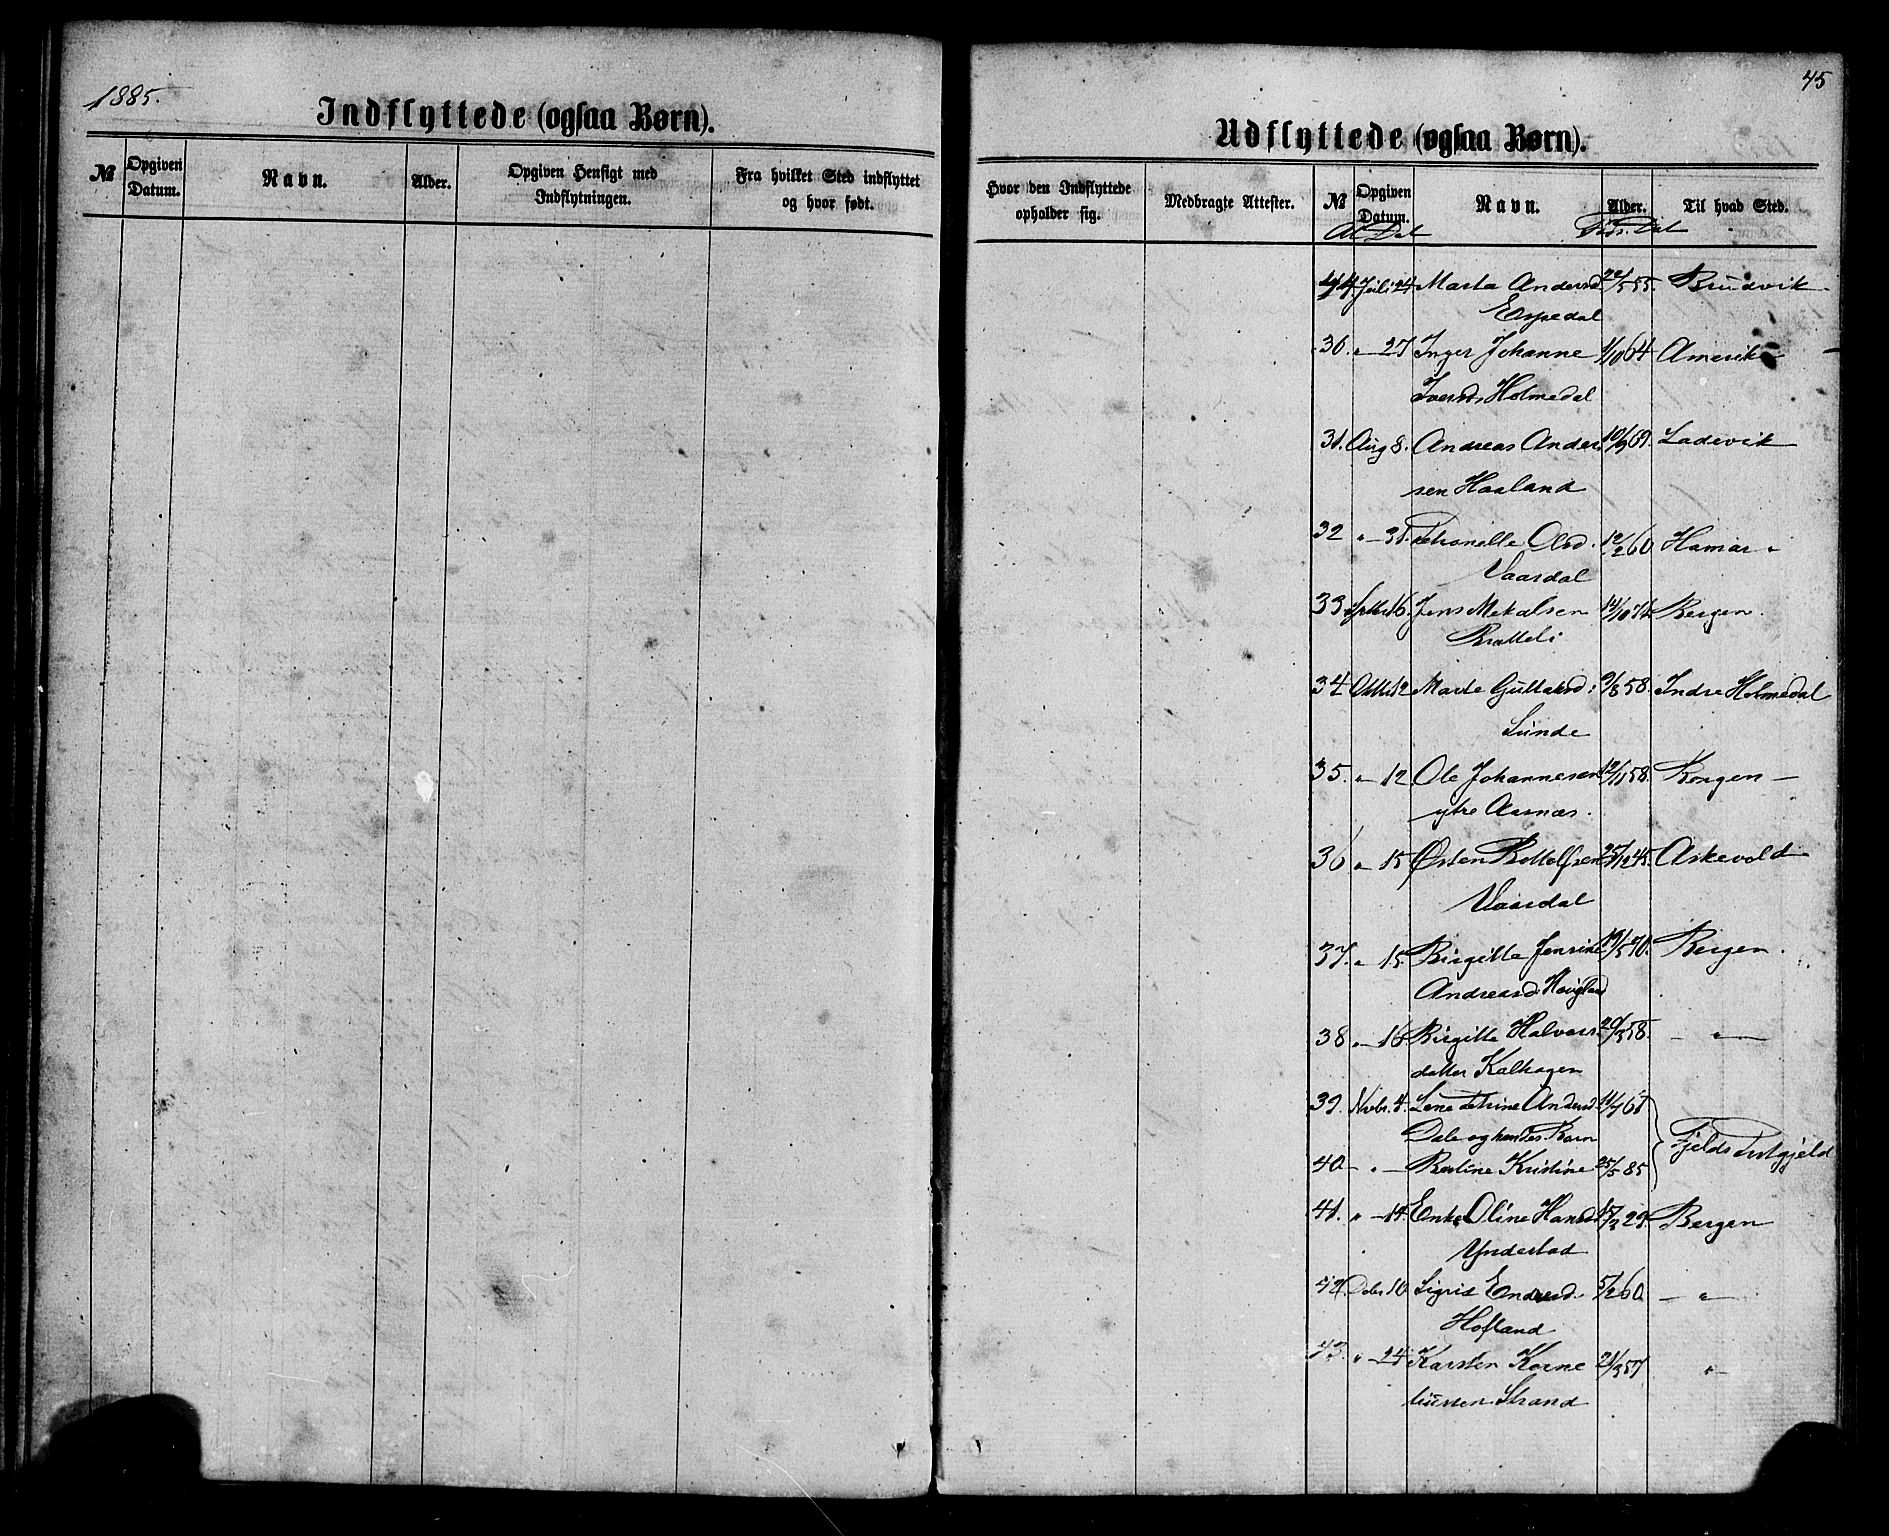 1885.
Indflyttede (ogsaa Børn).
№
Opgiven Datum.
Navn.
Alder.
Opgiven Hensigt med Indflytningen.
Fra hvilket Sted indflyttet og hvor født.
45
Udflyttede (ogsaa Børn).
Hvor den Indflyttede opholder sig.
Medbragte Attester.
№
Opgiven Datum.
Navn.
Alder.
Til hvad Sted.
Føds. Dat
Juli 24 Marta Andersd 22/5 55. Brudvik
Espedal
30. " 27 Inger Johanne 1/10 64 Amerika
Iversd. Holmedal
31. Aug 8. Andreas Ander 10/9 69. Ladevik
sen Haaland
32 " 31. Petronelle Olsd. 12/2 60 Hamar
Vaardal
33 Septbr 16. Jens Mekalsen 14/10 Bergen.
Bratteli
34 Oktbr 12 Marte Guttaksd: 9/8 58. Indre Holmedal
Sunde
35. " 12. Ole Johannesen 12/11 58. Bergen
ytre Aarnæs.
36 " 15 Østen Rottolfsen 25/12 45. Askevold
Vaardal
37. " 15. Birgitte Jensine 19/5 70. Bergen.
Andreasd. Høugland
38 " 16 Birgitte Halvors 20/3 58. — " —
datter Kalhagen
39. Novbr. 4. Lene Petrine Andersd 11/7 61
Dale og hendes Barn
Fjelds Prstgjeld
40 — " — Bertine Kristine 25/5 85
41. " — 14. Enke Oline Hansd 15/3 29. Bergen
Yndestad
42. Decbr 10 Sigrid Endresd. 5/2 60. — " —
Hofland
43. " 24 Karsten Korne 21/3 57 "
liussen Strand